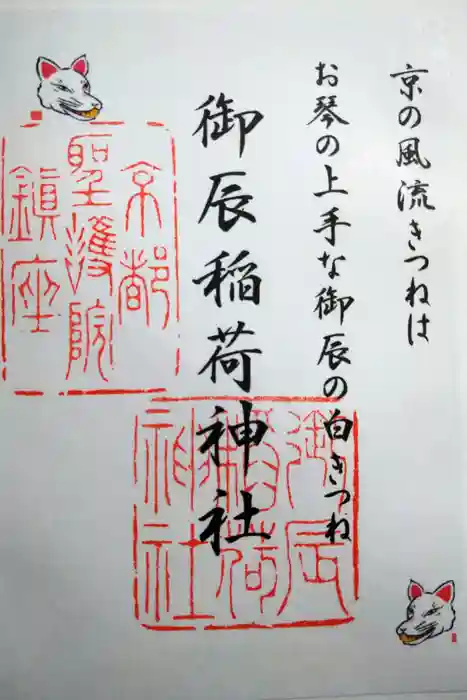 京の風流きつねは
お琴の上手な御辰の白きつね
御辰稲荷神社
京都
聖護院
鎮座
御辰
稲荷
神社